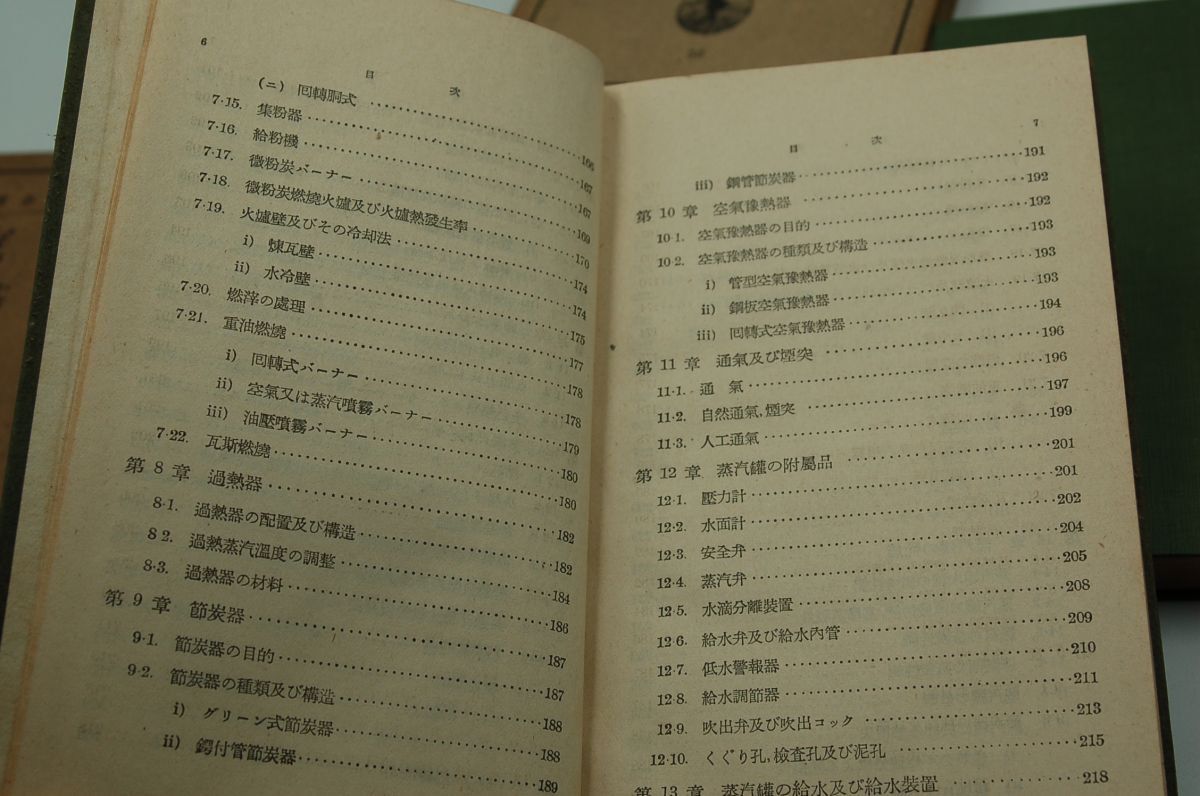 6
目 次
(ニ) 囘轉胴式 ……166
7·15. 集粉器……167
7·16. 給粉機……167
7·17. 微粉炭バーナー……169
7·18. 微粉炭燃燒火爐及び火爐熱發生率……170
7·19. 火爐壁及びその冷却法……174
i) 煉瓦壁……174
ii) 水冷壁……175
7·20. 燃滓の處理……177
7·21. 重油燃燒……178
i) 囘轉式バーナー……178
ii) 空氣又は蒸汽噴霧バーナー……179
iii) 油壓噴霧バーナー……180
7·22. 瓦斯燃燒……180
第 8 章 過熱器……182
8·1. 過熱器の配置及び構造……182
8 2. 過熱蒸汽溫度の調整……184
8·3. 過熱器の材料……186
第 9 章 節炭器……187
9·1. 節炭器の目的……187
9·2. 節炭器の種類及び構造……188
i) グリーン式節炭器……188
ii) 鍔付管節炭器……189
目 次
7
iii) 鋼管節炭器……191
第 10 章 空氣豫熱器……192
10·1. 空氣豫熱器の目的……192
10·2. 空氣豫熱器の種類及び構造……193
i) 管型空氣豫熱器……193
ii) 鋼板空氣豫熱器……193
iii) 囘轉式空氣豫熱器……194
第 11 章 通氣及び煙突……196
11·1. 通 氣……196
11·2. 自然通氣,煙突……197
11·3. 人工通氣……199
第 12 章 蒸汽罐の附屬品……201
12·1. 壓力計……201
12·2. 水面計……202
12·3. 安全弁……204
12·4. 蒸汽弁……205
12·5. 水滴分離裝置……208
12·6. 給水弁及び給水內管……209
12·7. 低水警報器……210
12·8 給水調節器……211
12·9 吹出弁及び吹出コック……213
12·10. くぐり孔,檢査孔及び泥孔……215
第 13 章 蒸汽罐の給水及び給水裝置……218